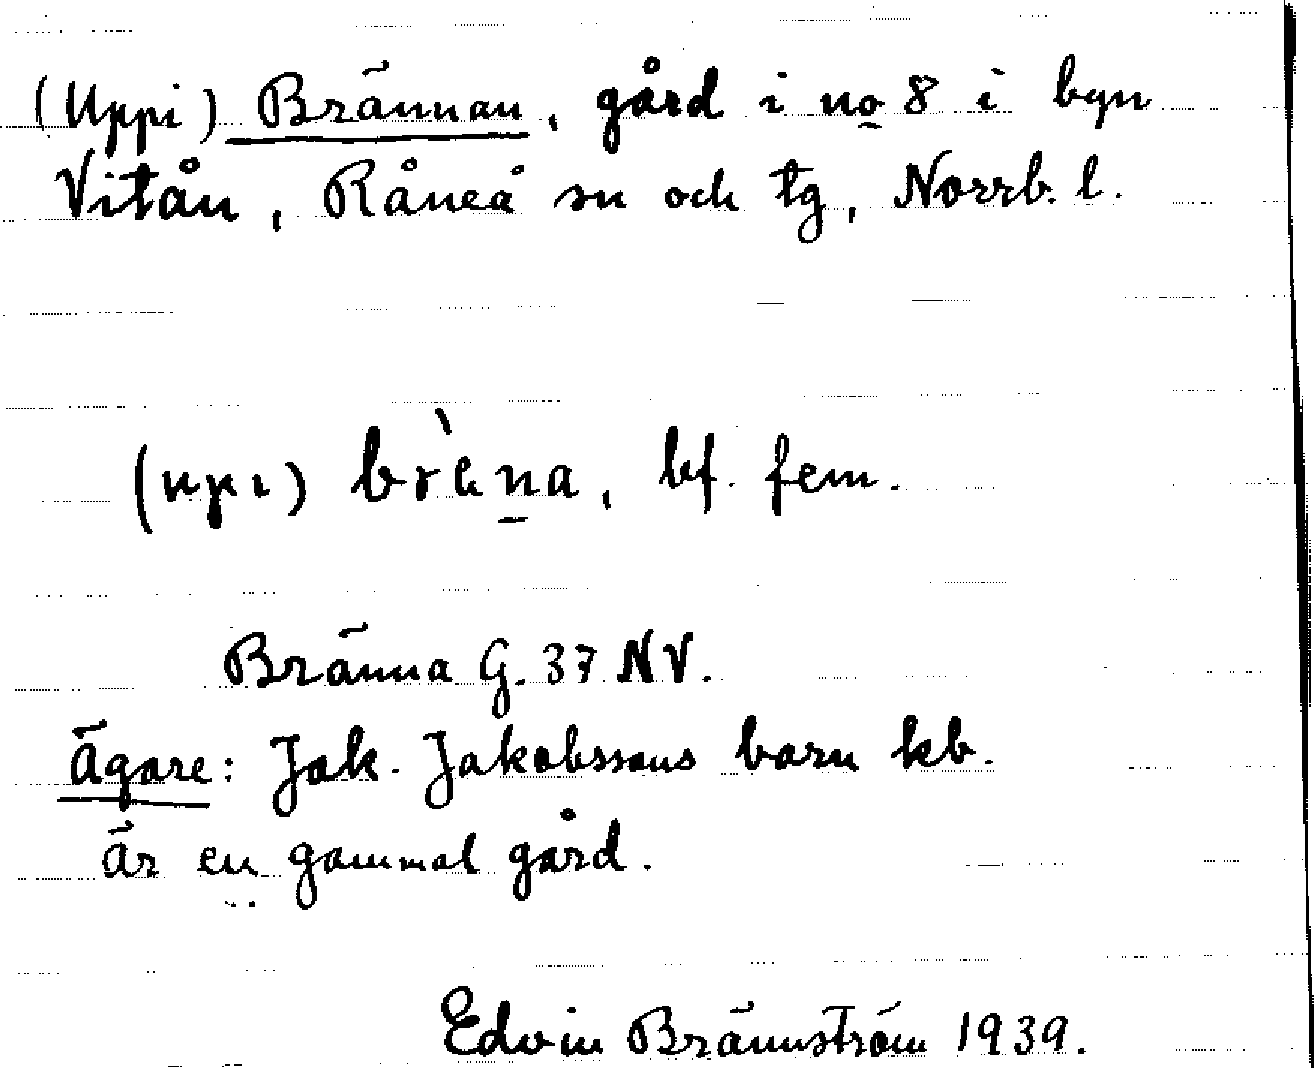 (Uppi) Brännan, gård i no 8 i byn
Vitån, Råneå sn och tg, Norrb. l.
(upi) brèna, bf. fem.
Bränna G. 37 NV.
Ägare: Jak. Jakobssons barn kb.
Är en gammal gård.
Edvin Brännström 1939.